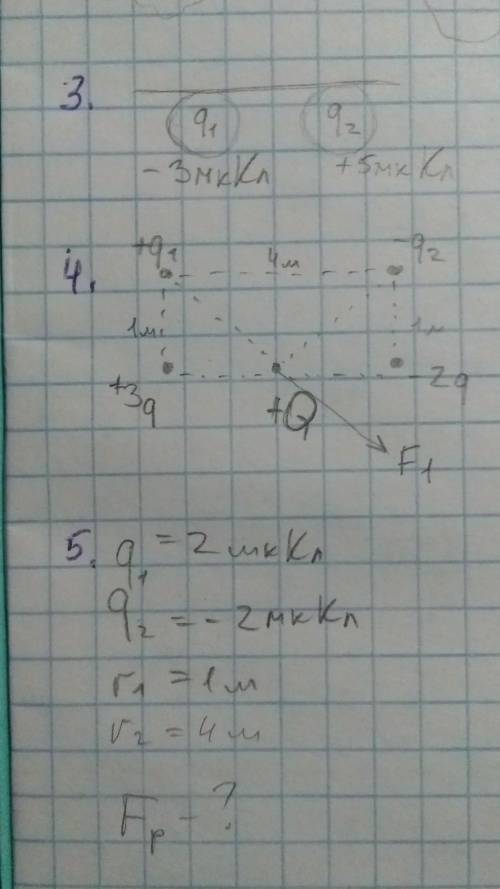 3.
q₁ q₂
-3мкКл +5мкКл
4.
+q₁ 4м -q₂
1м 1м
+3q +Q -2q
F₁
5. q₁ = 2мкКл
q₂ = -2мкКл
r₁ = 1м
r₂ = 4м
Fр - ?